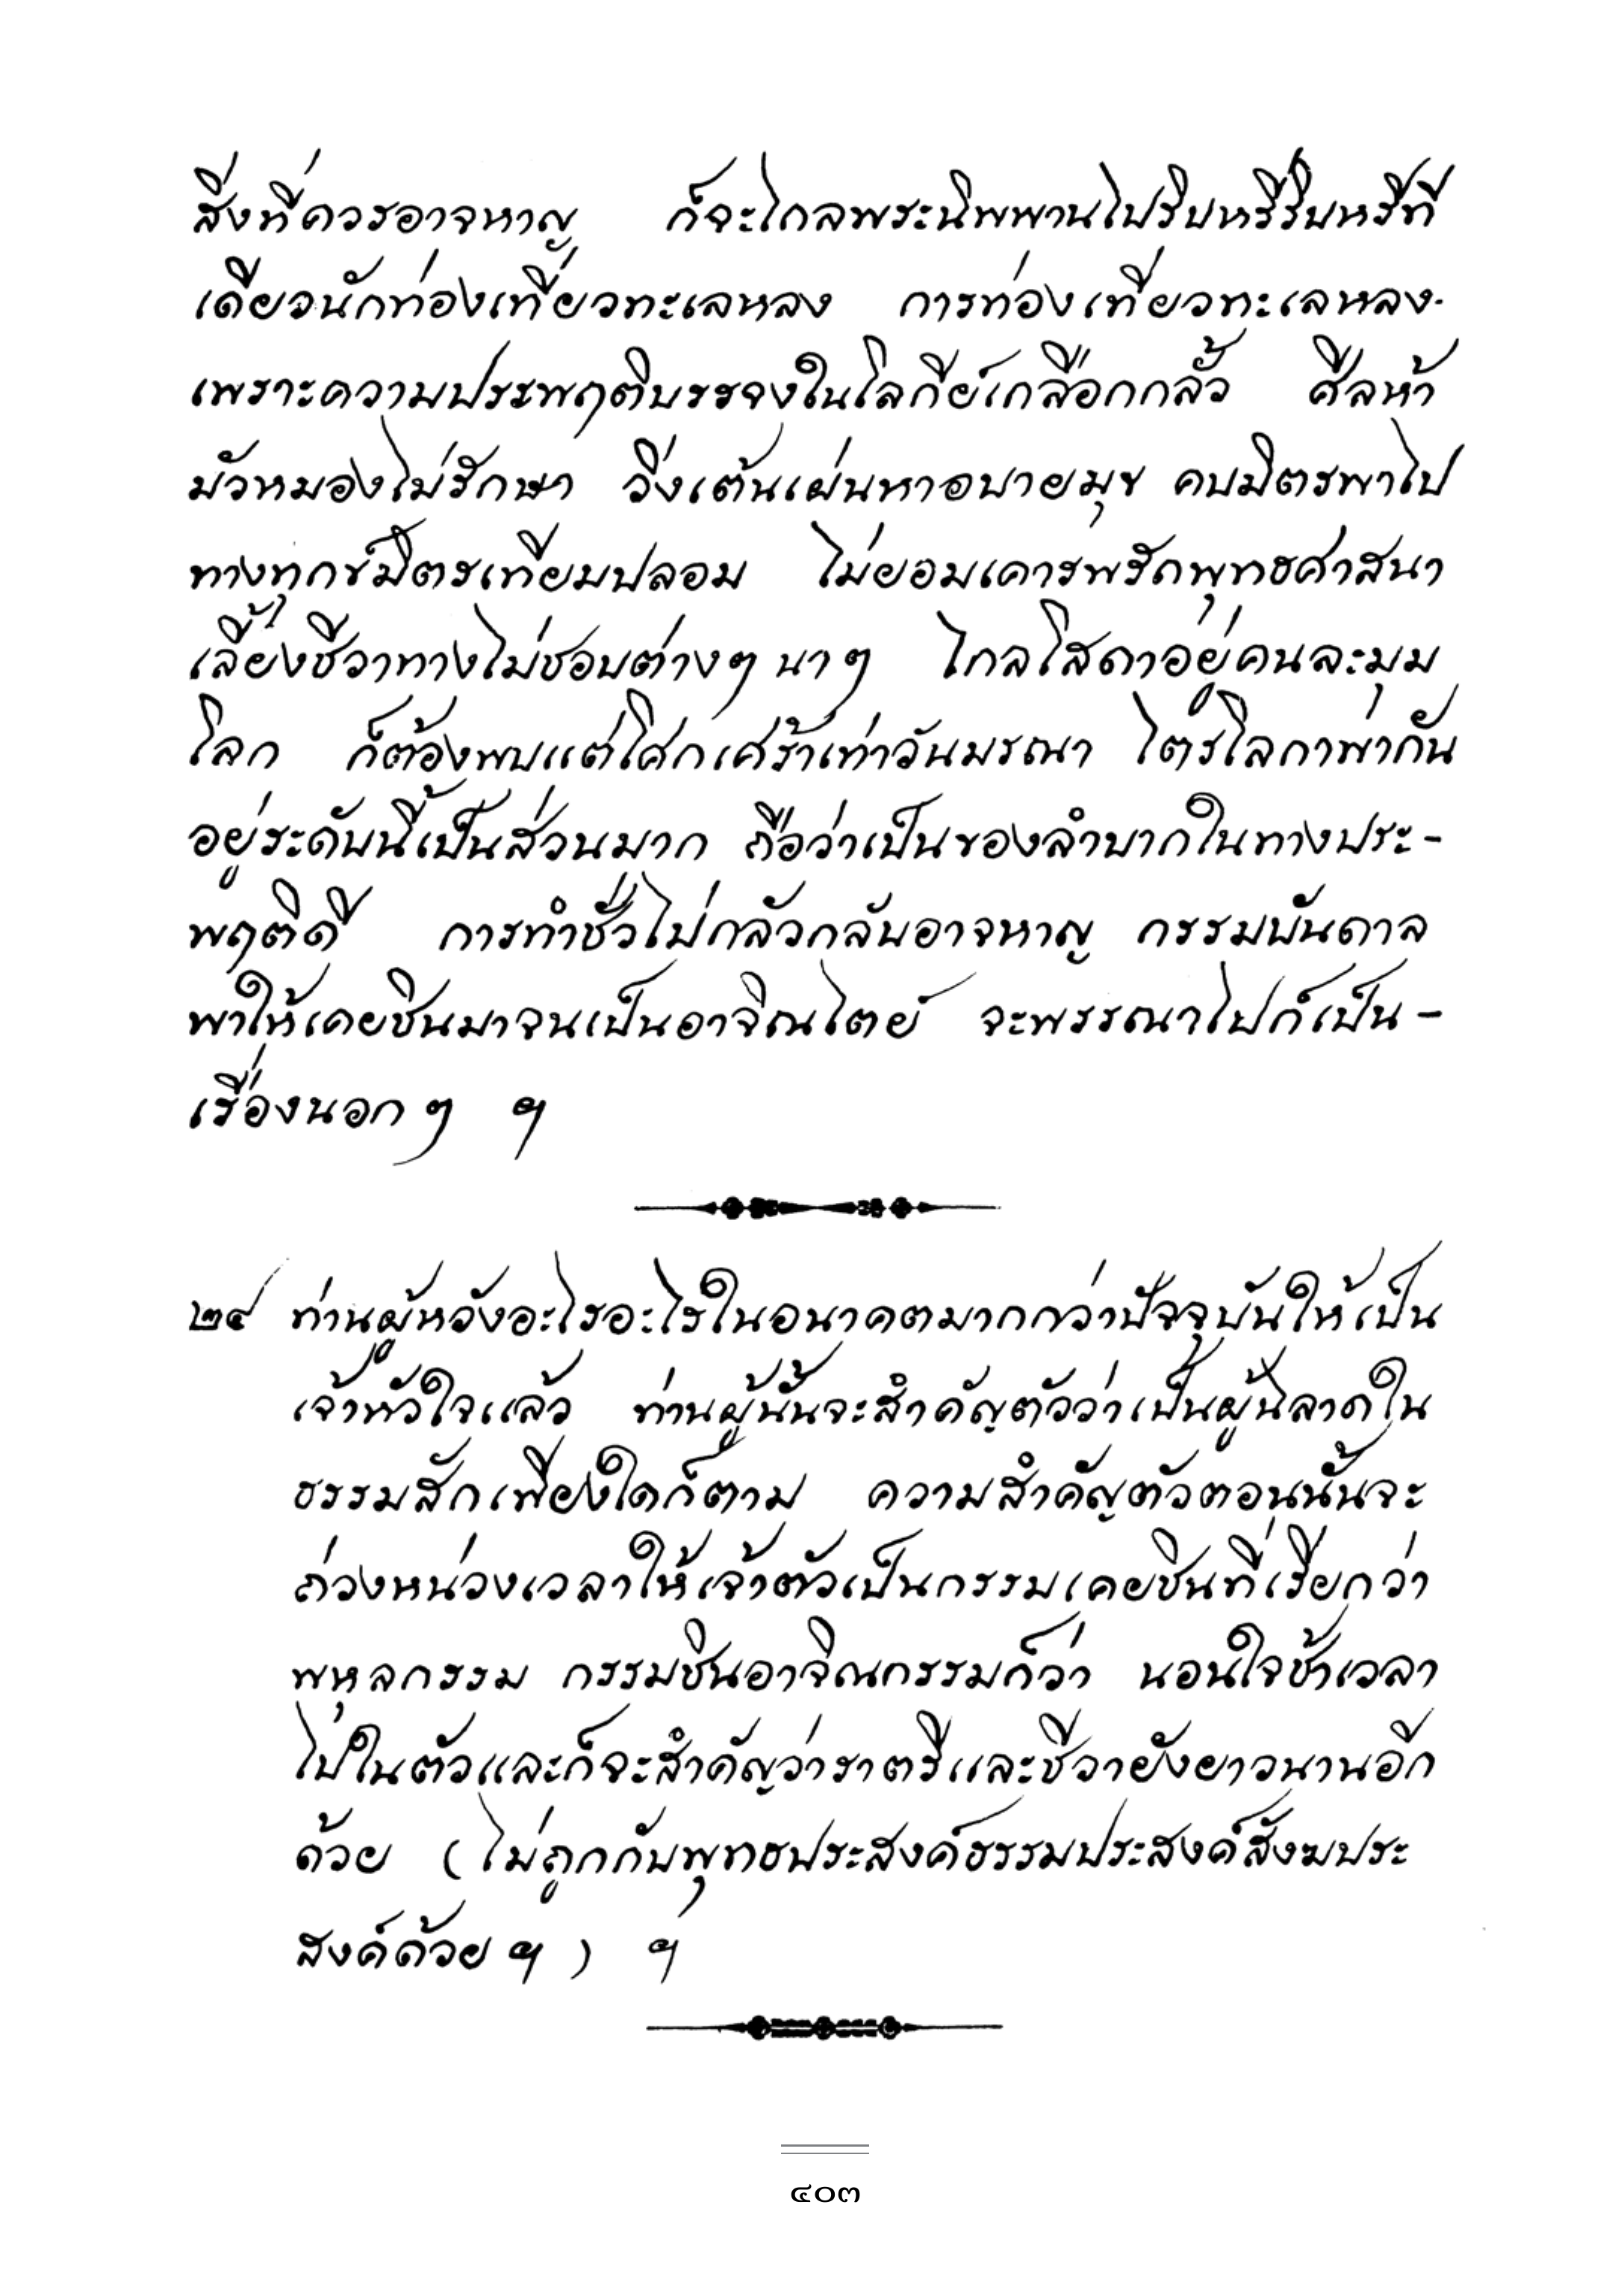 สิ่งที่ควรอาจหาญ ก็จะไกลพระนิพพานไปริบหรี่ริบหรี่ที
เดียวนักท่องเที่ยวทะเลหลง การท่องเที่ยวทะเลหลง
เพราะความประพฤติบรรจงในโลกีย์เกลือกกลั้ว ศีลห้า
มัวหมองไม่รักษา วิ่งเต้นเผ่นหาอบายมุข คบมิตรพาไป
ทางทุกข์มิตรเทียมปลอม ไม่ยอมเคารพรักพุทธศาสนา
เลี้ยงชีวาทางไม่ชอบต่างๆ นาๆ ไกลโสดาอยู่คนละมุม
โลก ก็ต้องพบแต่โศกเศร้าเท่าวันมรณา ไตรโลกาพากัน
อยู่ระดับนี้เป็นส่วนมาก ถือว่าเป็นของลำบากในทางประ-
พฤติดี การทำชั่วไม่กลัวกลับอาจหาญ กรรมบันดาล
พาให้เคยชินมาจนเป็นอาจิณไตย์ จะพรรณาไปก็เป็น-
เรื่องนอกๆ ฯ
๒๔ ท่านผู้หวังอะไรอะไรในอนาคตมากกว่าปัจจุบันให้เป็น
เจ้าหัวใจแล้ว ท่านผู้นั้นจะสำคัญตัวว่าเป็นผู้ฉลาดใน
ธรรมสักเพียงใดก็ตาม ความสำคัญตัวตอนนั้นจะ
ถ่วงหน่วงเวลาให้เจ้าตัวเป็นกรรมเคยชินที่เรียกว่า
พหุลกรรม กรรมชินอาจิณกรรมก็ว่า นอนใจช้าเวลา
ไปในตัวและก็จะสำคัญว่าราตรีและชีวายังยาวนานอีก
ด้วย (ไม่ถูกกับพุทธประสงค์ธรรมประสงค์สังฆประ
สงค์ด้วยฯ) ฯ
๔๐๓